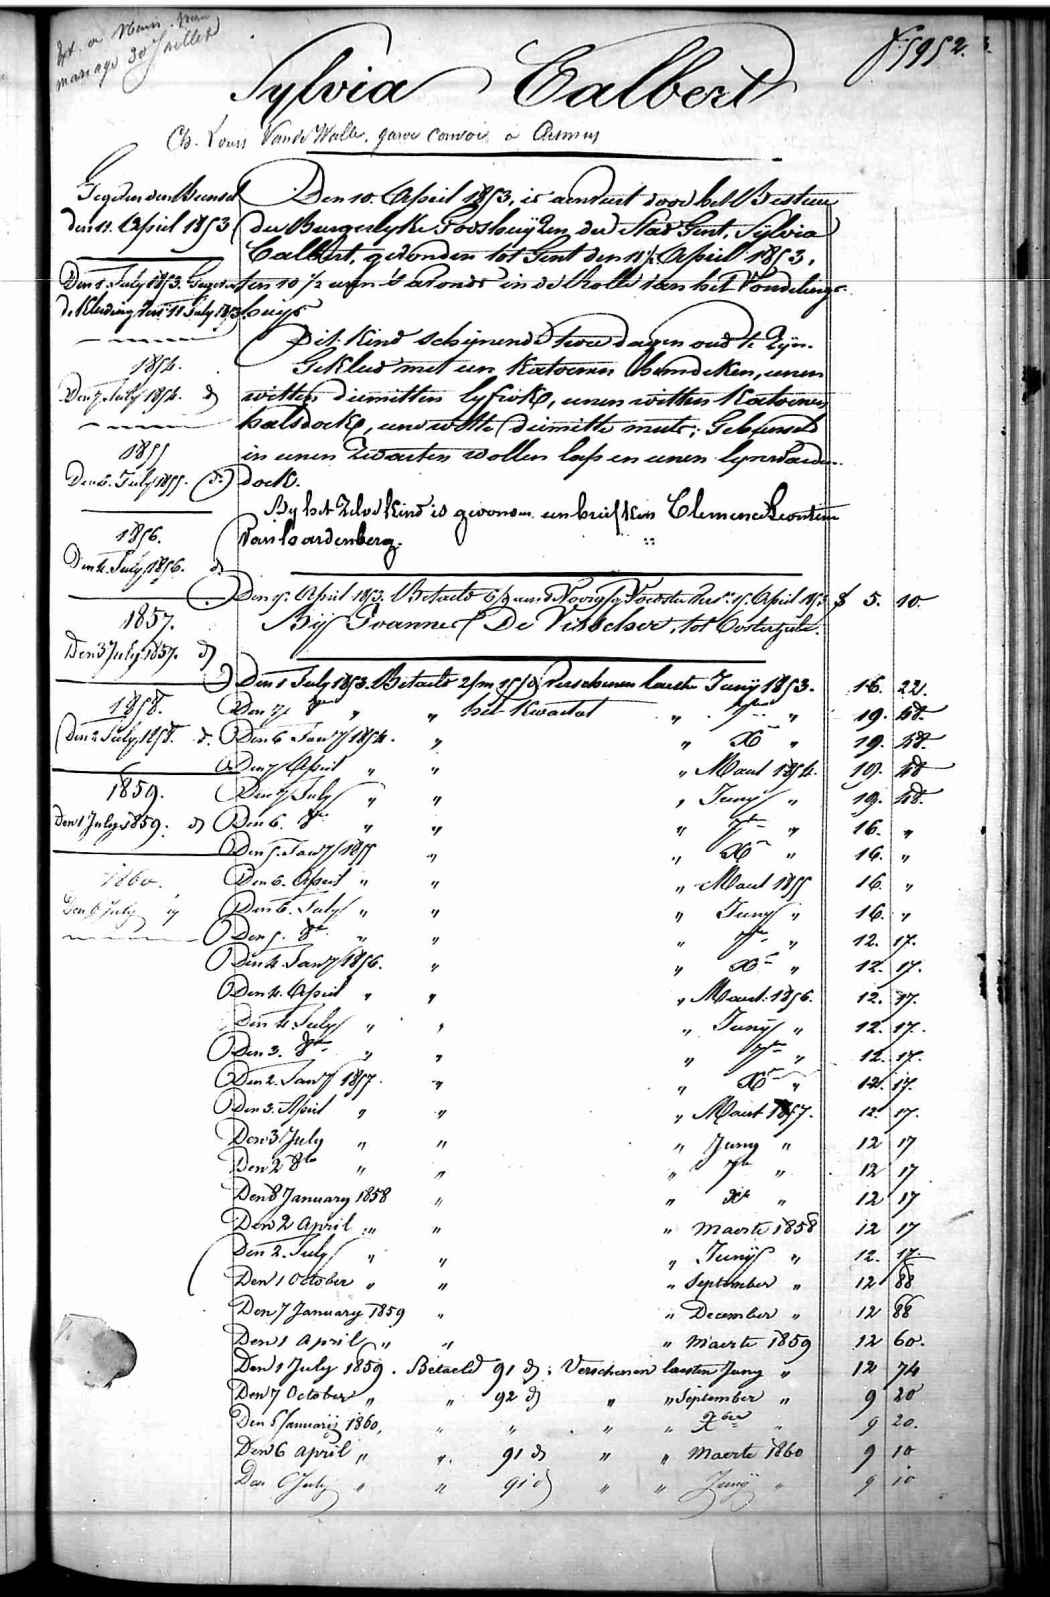 mariage 30 Juillet
f. 5952.
Sylvia Calbert
Ch. Louis Vande Walle, garde convoi à
Den 10. April 1853, is aenveird door het Bestuer
der Burgerlyke Godshuyzen der Stad Gent, Sylvia
Calbert, gevonden tot Gent den April 1853,
ten 10 1/2 uren 's avonds in de Rolle van het Vondeling-
huys
Dit kind schynende twee dagen oud te zyn.
Gekleed met een katoenen hemdeken, eenen
witten diemitten lyfrok, eenen witten katoenen
halsdoek, eene witte diemitte muts; Gebunseld
in eenen zwarten wollen lap en eenen lynwaeden
doek.
By het zelve kind is gevonden een briefken Clemence Leontine
Van hardenberg.
den 11. April 1853
Den 1 July 1853.
de Kleeding den 11 July 1853
1854.
Den 7 July 1854. d°
1855
Den 6. July 1855. d°
1856.
Den 4. July 1856. d°
1857.
Den 3 July 1857. d°
1858.
Den 2 July 1858. d°
1859.
Den 1 July 1859. d°
1860.
Den 6 July "
April 1853. Betaeld April 1853 5. 10.
Bij Joanne De Visscher, tot Oosterzele.
Den 1 July 1853. Betaeld Verschenen laesten Juny 1853. 16. 22.
Den 7 " " het Kwartael " 7ber " 19. 48.
Den 6 Janry 1854. " " Xr " 19. 48.
Den 7 April " " " Maert 1854. 19. 48
Den 7 July " " " Juny " 19. 48.
Den 6. 8er " " " 7er " 16. "
Den 5. Janry 1855 " " Xr " 16. "
Den 6. April " " " Maert 1855 16. "
Den 6. July " " " Juny " 16. "
Den 5. 8er " " " 7er " 12. 17.
Den 4. Janry 1856. " " Xr " 12. 17.
Den 4. April " " " Maert 1856. 12. 17.
Den 4 July " " " Juny " 12. 17.
Den 3. 8er " " " 7er " 12. 17.
Den 2. Janry 1857. " " Xr " 12. 17.
Den 3. April " " " Maert 1857. 12. 17.
Den 3 July " " " Juny " 12 17
Den 2 8er " " " 7er " 12 17
Den 8 January 1858 " " Xr " 12 17
Den 2 April " " " Maerte 1858 12 17
Den 2. July " " " Juny " 12. 17
Den 1 October " " " September " 12 88
Den 7 January 1859 " " December " 12 88
Den 1 April " " " Maerte 1859 12 60.
Den 1 July 1859. Betaeld 91 d; Verschenen laesten Juny " 12 74
Den 7 October " " 92 d " " September " 9 20
Den 5 January 1860, " " " " Xber " 9 20.
Den 6 April " " 91 d " " Maerte 1860 9 10
Den 6 July " " 91 d " " Juny " 9 10